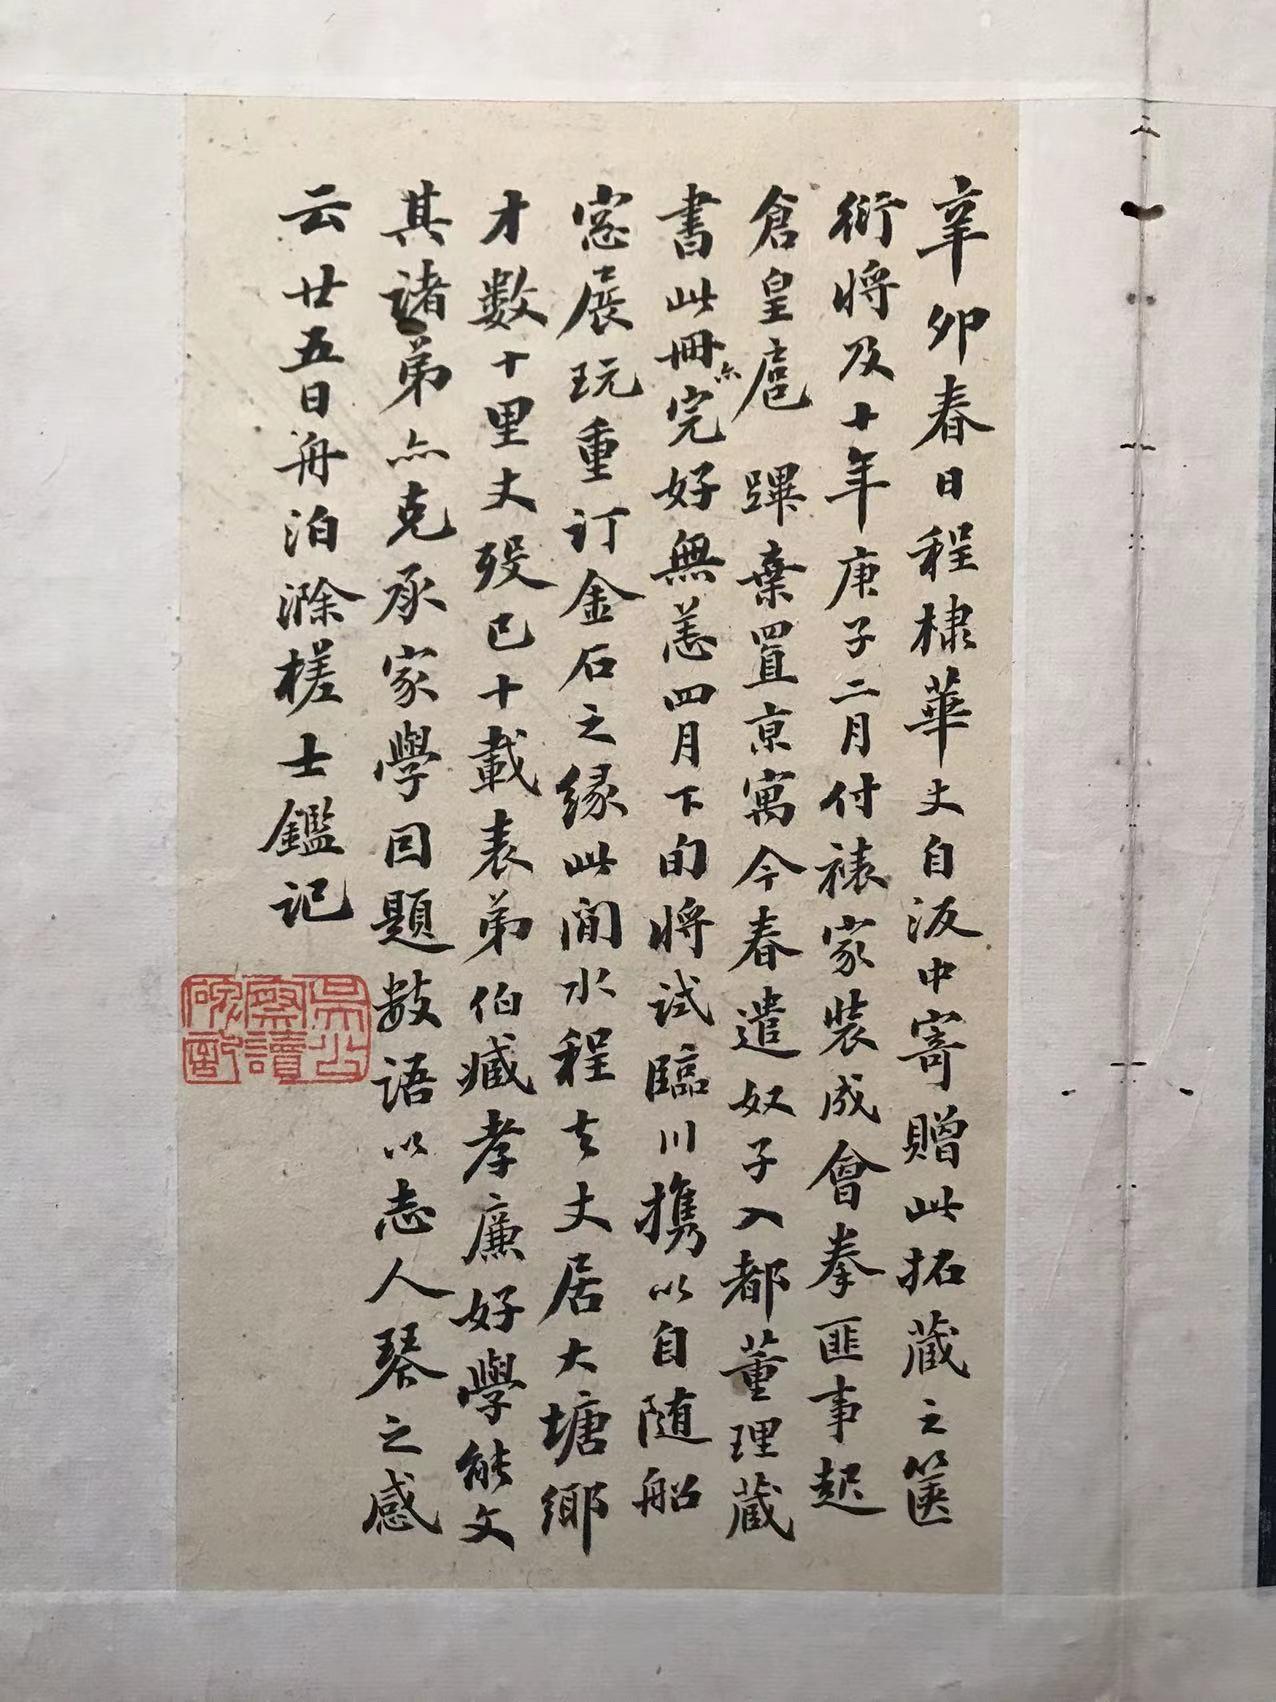 辛卯春日程棣華丈自汳中寄贈此拓藏之篋
衍將及十年庚子二月付裱家裝成會拳匪事起
倉皇扈蹕棄置京寓今春遣奴子入都董理藏
書此冊亦完好無恙四月下旬將試臨川攜以自随船
窓展玩重订金石之縁此間水程去丈居大塘鄉
才数十里丈殁已十載表弟伯臧孝廉好學能文
其諸弟亦克承家學回題数語以志人琴之感
云廿五日舟泊滁槎士鑑記
吳
察讀